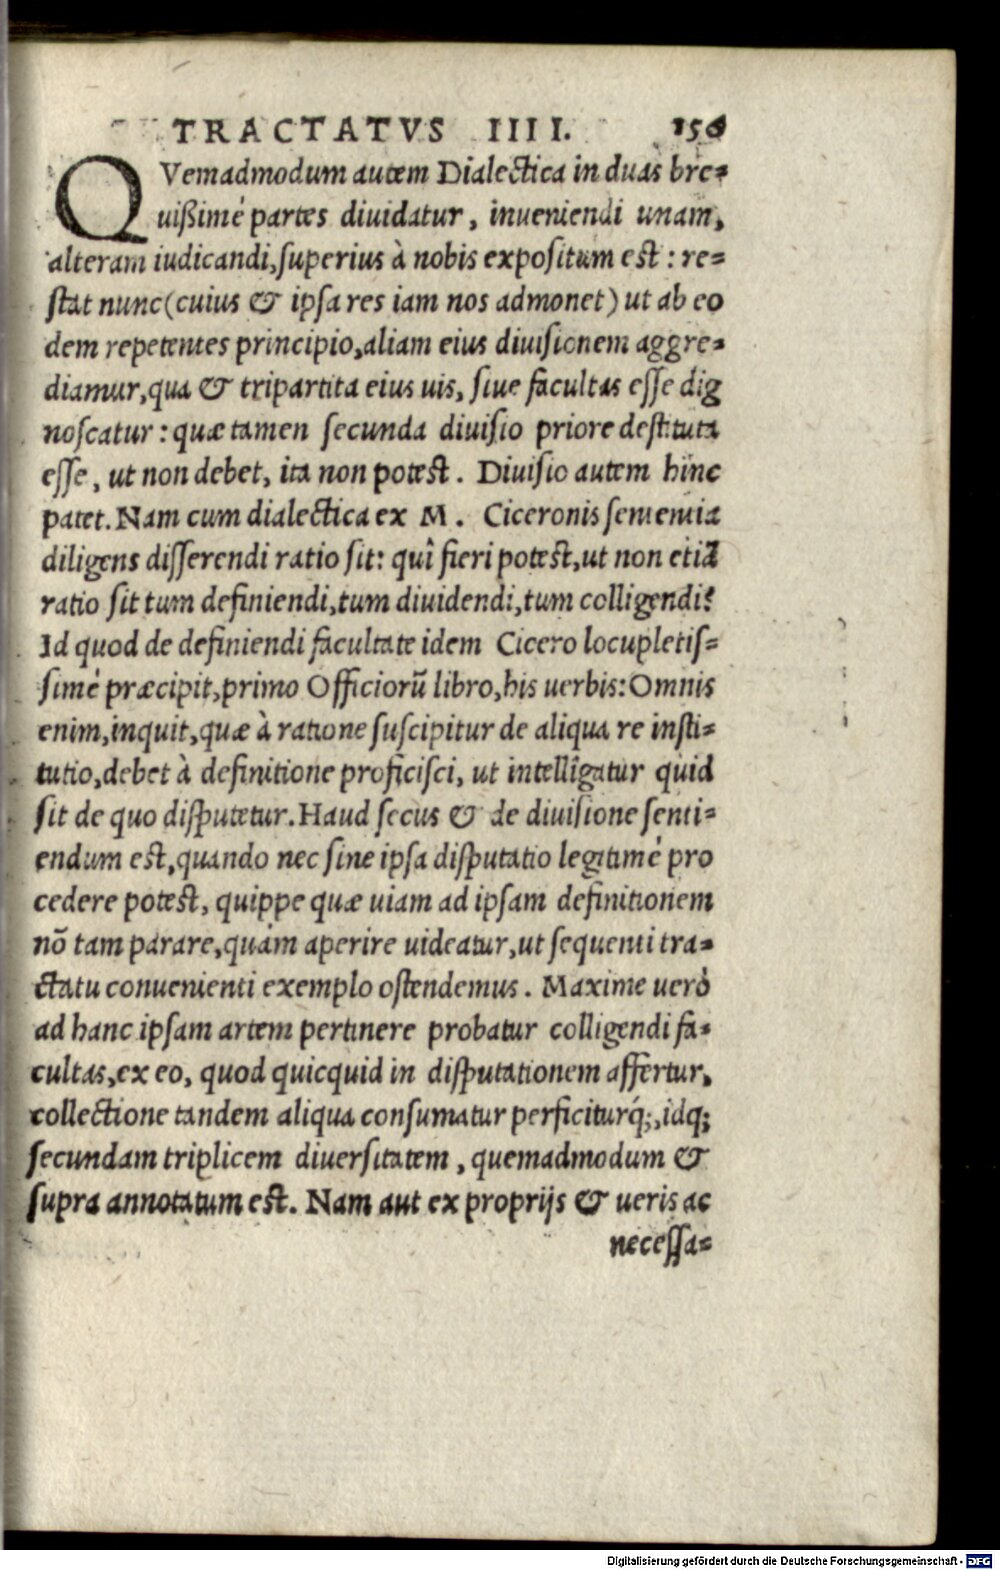 TRACTATVS IIII. 156
QVemadmodum autem Dialectica in duas bre-
uißimé partes diuidatur, inueniendi unam,
alteram iudicandi, superius à nobis expositum est: re-
stat nunc (cuius & ipsa res iam nos admonet) ut ab eo
dem repetentes principio, aliam eius diuisionem aggre-
diamur, qua & tripartita eius uis, siue facultas esse dig
noscatur: quæ tamen secunda diuisio priore destituta
esse, ut non debet, ita non potest. Diuisio autem hinc
patet. Nam cum dialectica ex M. Ciceronis sententia
diligens disserendi ratio sit: quî fieri potest, ut non etiã
ratio sit tum definiendi, tum diuidendi, tum colligendi?
Id quod de definiendi facultate idem Cicero locupletis-
simé præcipit, primo Officiorũ libro, his uerbis: Omnis
enim, inquit, quæ à ratione suscipitur de aliqua re insti-
tutio, debet à definitione proficisci, ut intelligatur quid
sit de quo disputetur. Haud secus & de diuisione senti-
endum est, quando nec sine ipsa disputatio legitimé pro
cedere potest, quippe quæ uiam ad ipsam definitionem
nõ tam parare, quàm aperire uideatur, ut sequenti tra-
ctatu conuenienti exemplo ostendemus. Maxime uerò
ad hanc ipsam artem pertinere probatur colligendi fa-
cultas, ex eo, quod quicquid in disputationem affertur,
collectione tandem aliqua consumatur perficiturq́;, idq;
secundam triplicem diuersitatem, quemadmodum &
supra annotatum est. Nam aut ex proprijs & ueris ac
necessa-
Digitalisierung gefördert durch die Deutsche Forschungsgemeinschaft - DFG